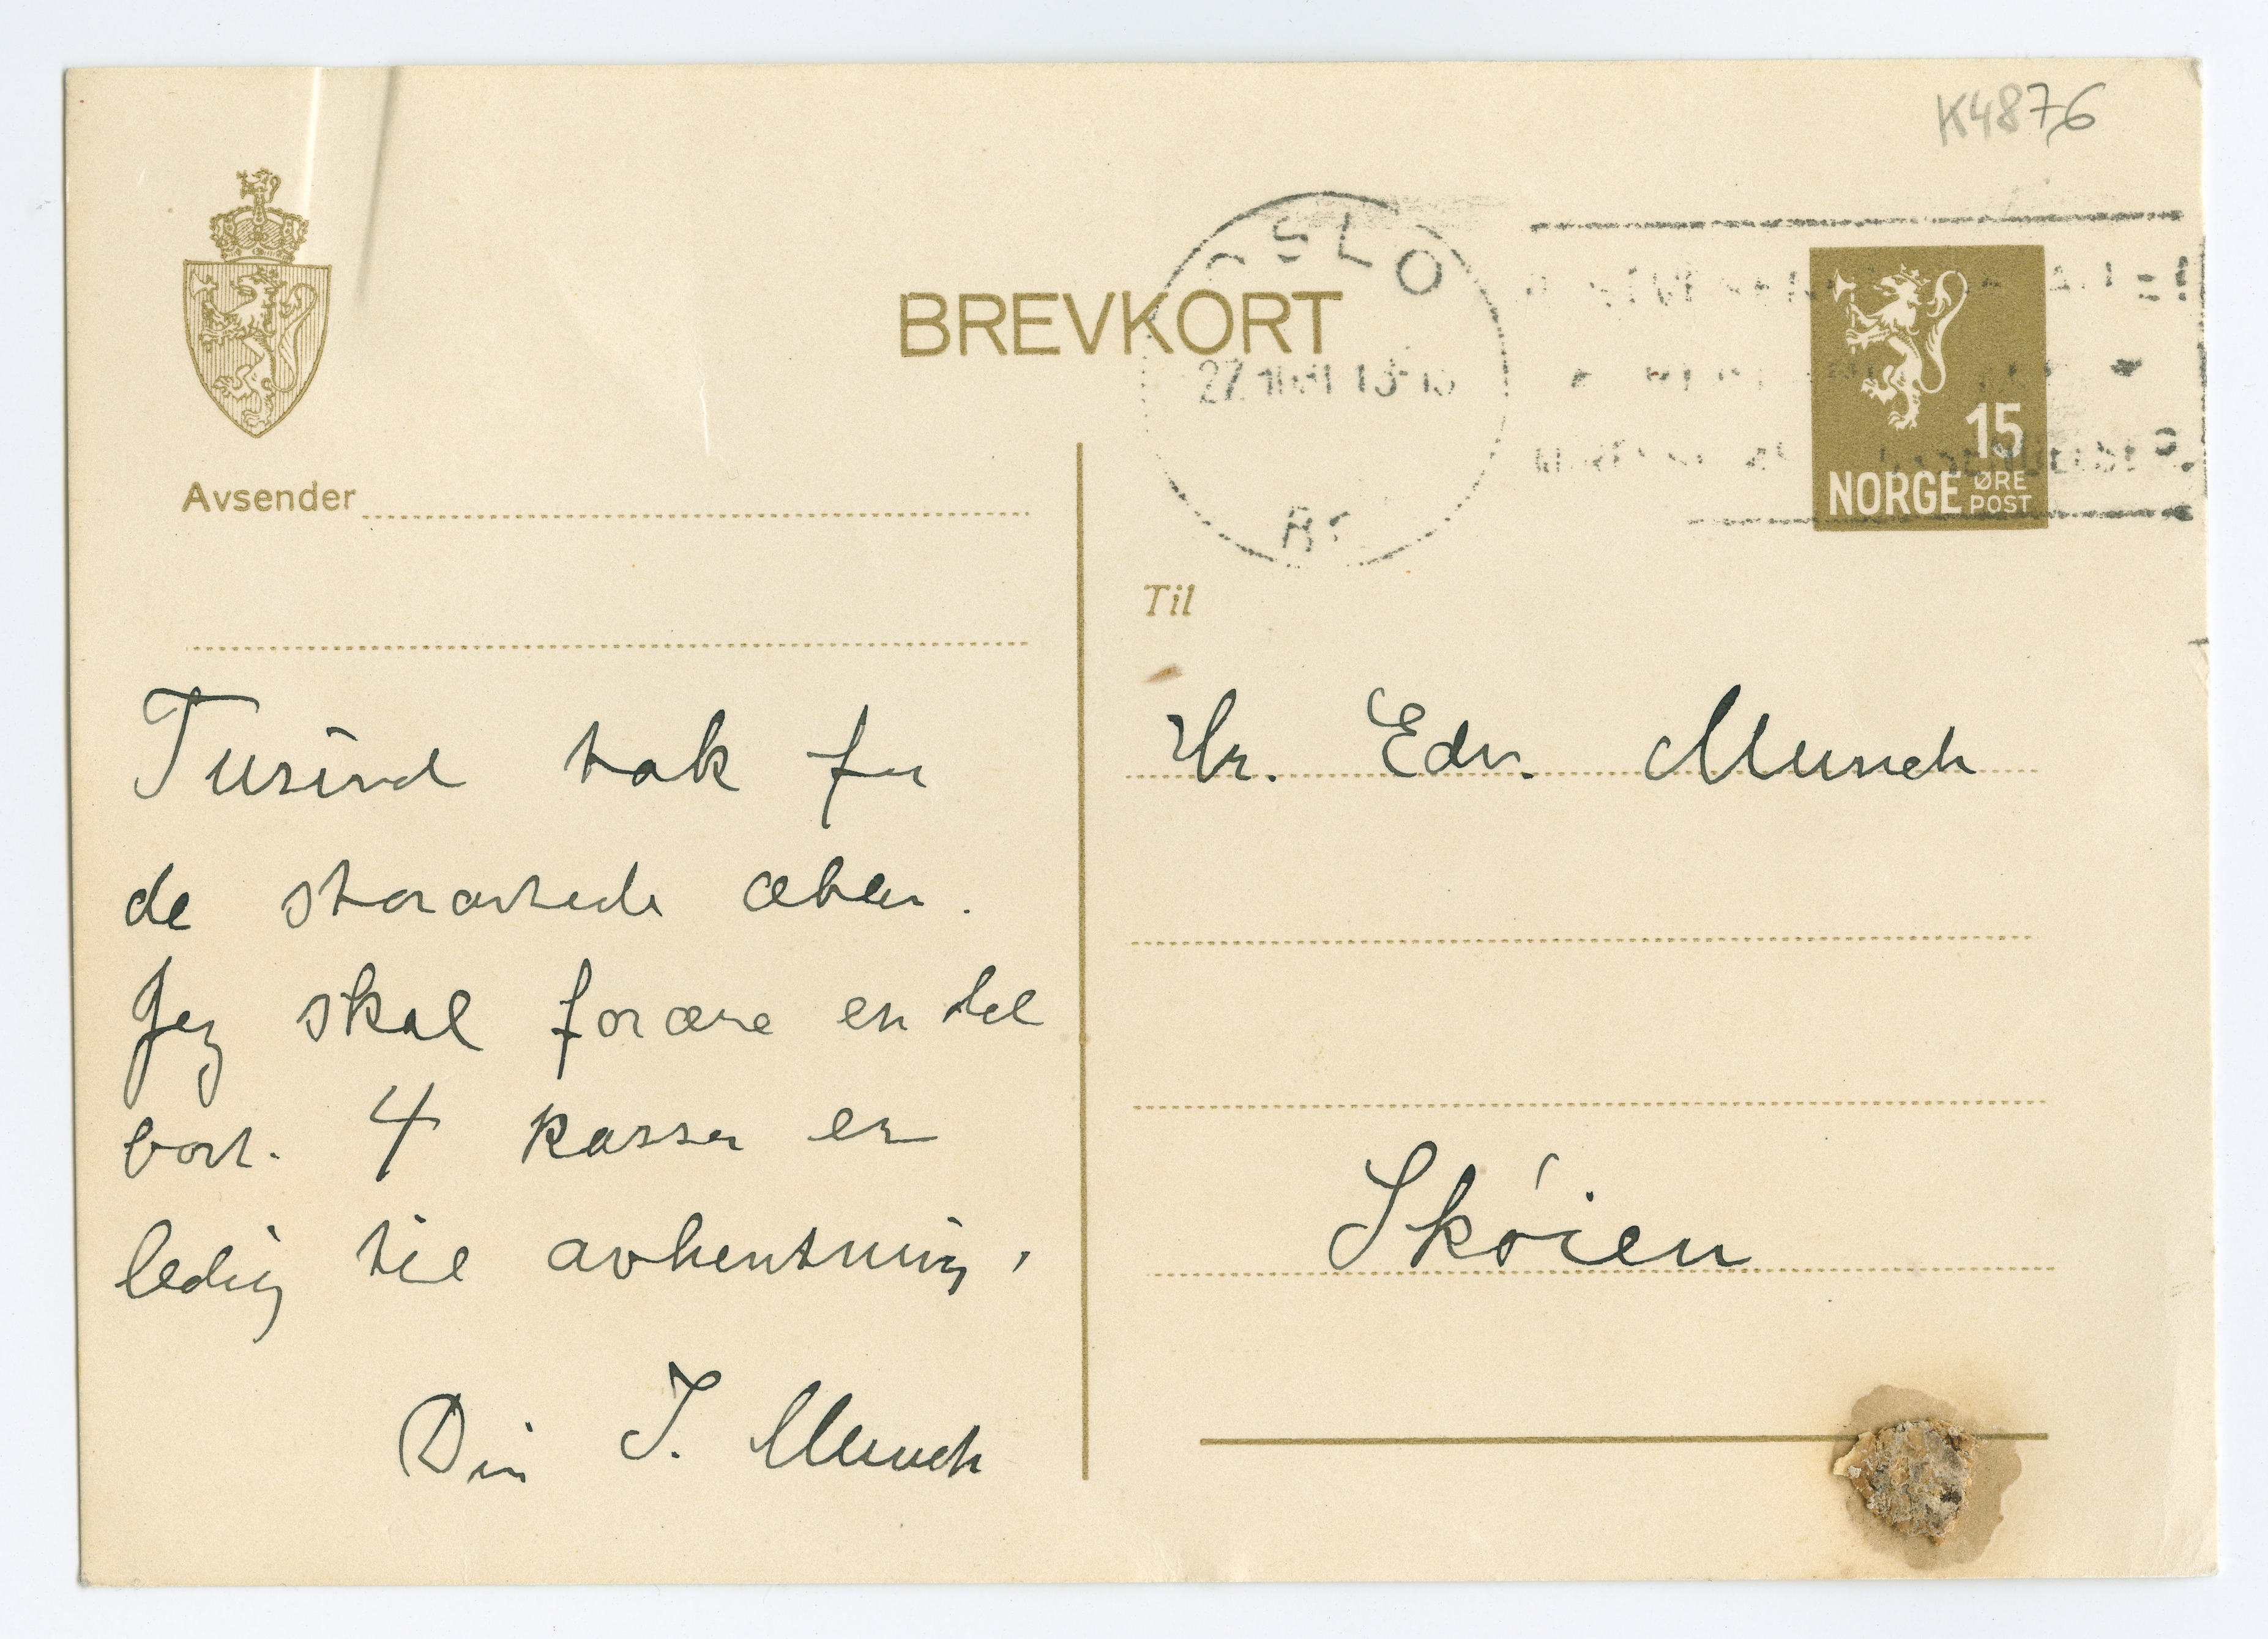 K4876
OSLO
BREVKORT
15
NORGE ØRE
POST
Avsender
Til
Tusind tak for
de storartede æbler.
Jeg skal forære en del
bort. 4 kasser er
ledig til avhentning,
Din I. Munch
Hr. Edv. Munch
Skøien